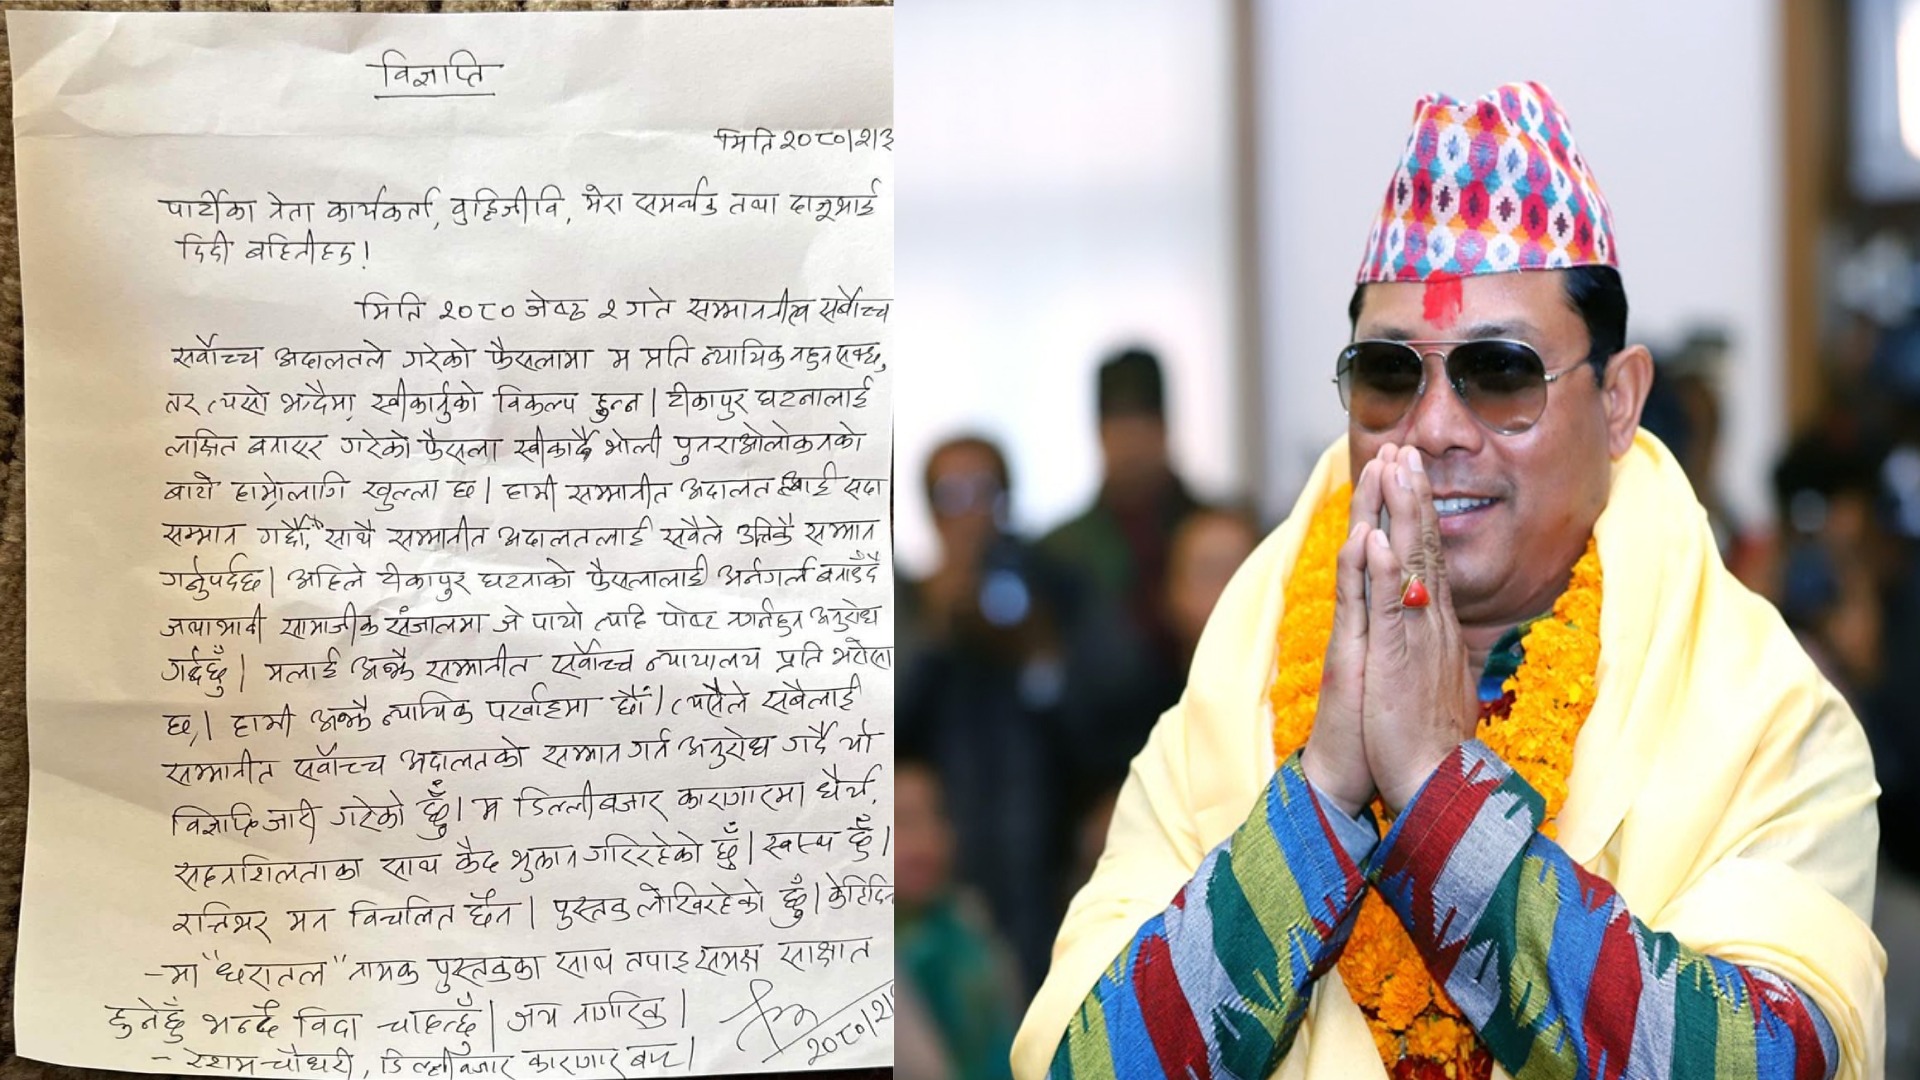 विज्ञप्ति
मिति २०८०।२।३
पार्टीका नेता कार्यकर्ता, वुद्धिजीवि, मेरा समर्थक तथा दाजूभाई
दिदी बहिनीहरु!
मिति २०८० जेष्ठ २ गते सम्माननीय सर्वोच्च
सर्वोच्च अदालतले गरेको फैसलामा म प्रति न्यायिक नहुनसक्छ,
तर त्यसो भन्दैमा स्वीकार्नुको विकल्प हुन्न। टीकापुर घटनालाई
लक्षित बनाएर गरेको फैसला स्वीकार्दै भोली पुनराओलोकनको
बाटो हाम्रोलागि खुल्ला छ। हामी सम्मानीत अदालत लाई सदा
सम्मान गर्दछौं, साथै सम्मानीत अदालतलाई सवैले उत्तिकै सम्मान
गर्नुपर्दछ। अहिले टीकापुर घटनाको फैसलालाई अर्नगर्ल बनाउँदै
जथाभावी सामाजीक संजालमा जे पायो त्यहि पोष्ट नगर्नहुन अनुरोध
गर्दछुँ। मलाई अझै सम्मानीत सर्वोच्च न्यायालय प्रति भरोसा
छ। हामी अझै न्यायिक पर्खाइमा छौं। त्यसैले सबैलाई
सम्मानीत सर्वोच्च अदालतको सम्मान गर्न अनुरोध गर्दै यो
विज्ञप्ति जारी गरेको छुँ। म डिल्लीबजार कारागारमा धैर्य,
सहनशिलताका साथ कैद भुक्तान गरिरहेको छुँ। स्वस्थ छुँ।
रत्तिभर मन विचलित छैन। पुस्तक लेखिरहेको छुँ। केहिदिन
-मा "धरातल" नामक पुस्तकका साथ तपाइ समक्ष साक्षात
हुनेछुँ भन्दै विदा चाहन्छुँ। जय नागरिक।
- रेशम चौधरी, डिल्लीबजार कारागार बाट।
२०८०।२।